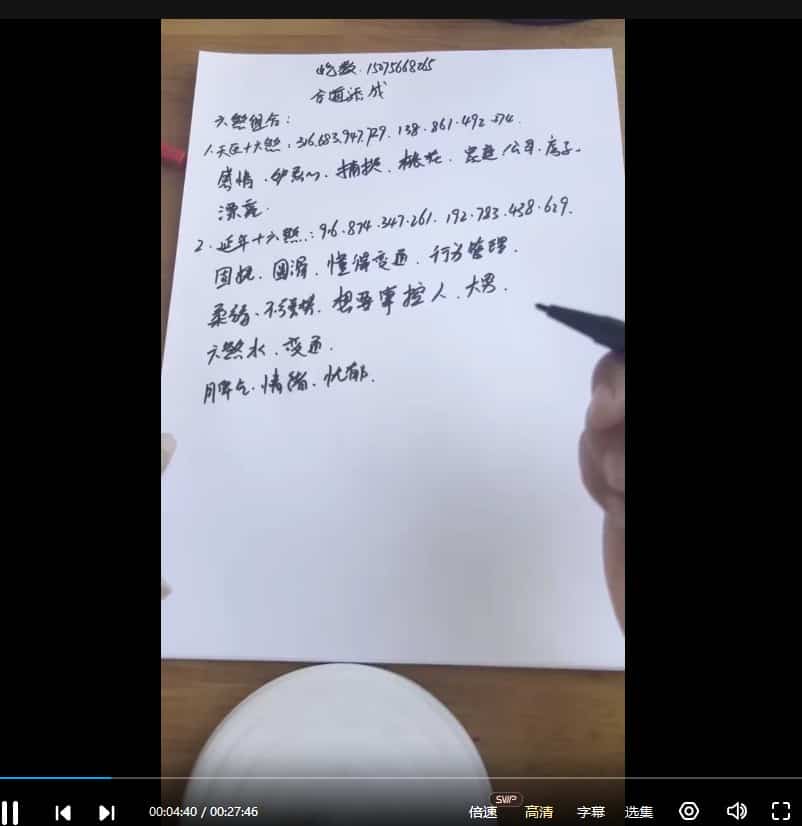 吃数.15075668265
六煞组合:
1.天医+六煞:316.683.947.729.138.861.492.274.
感情、桃花、家庭/公司、房子、
漂亮.
2.延年+六煞:916.874.347.261.192.783.438.629.
圆滑、懂得变通、行为管理.
柔弱、不强势、想要掌控人、大男.
六煞水、变通.
脾气、情绪、忧郁.
00:04:40 / 00:27:46
SVIP
倍速 高清 字幕 选集